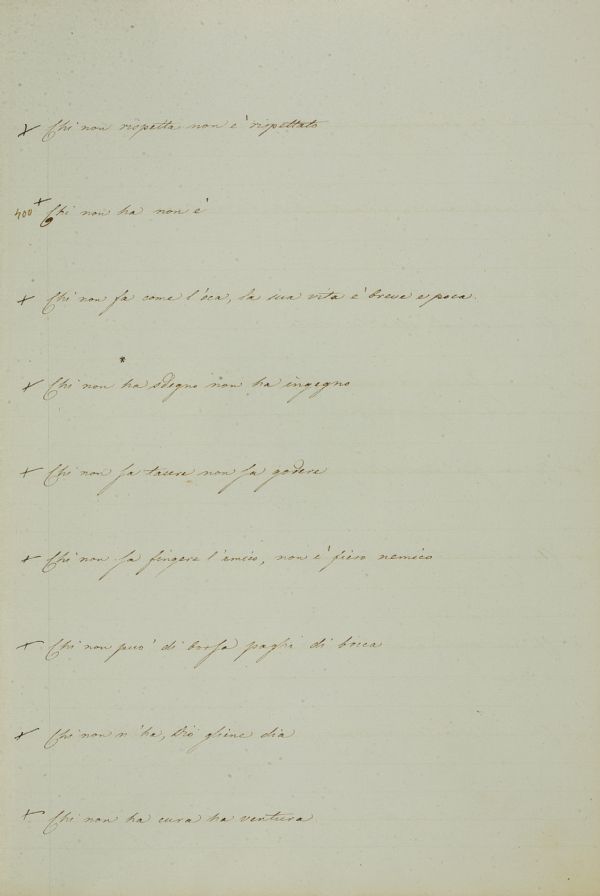 x Chi non rispetta non è rispettato
400 x Chi non ha non è
x Chi non fa come l'oca, la sua vita è breve e poca.
*
x Chi non ha sdegno non ha ingegno
x Chi non sa tacere non sa godere
x Chi non sa fingere l'amico, non è fiero nemico
x Chi non può di borsa paghi di bocca
x Chi non n'ha, Dio gliene dia
x Chi non ha cura ha ventura